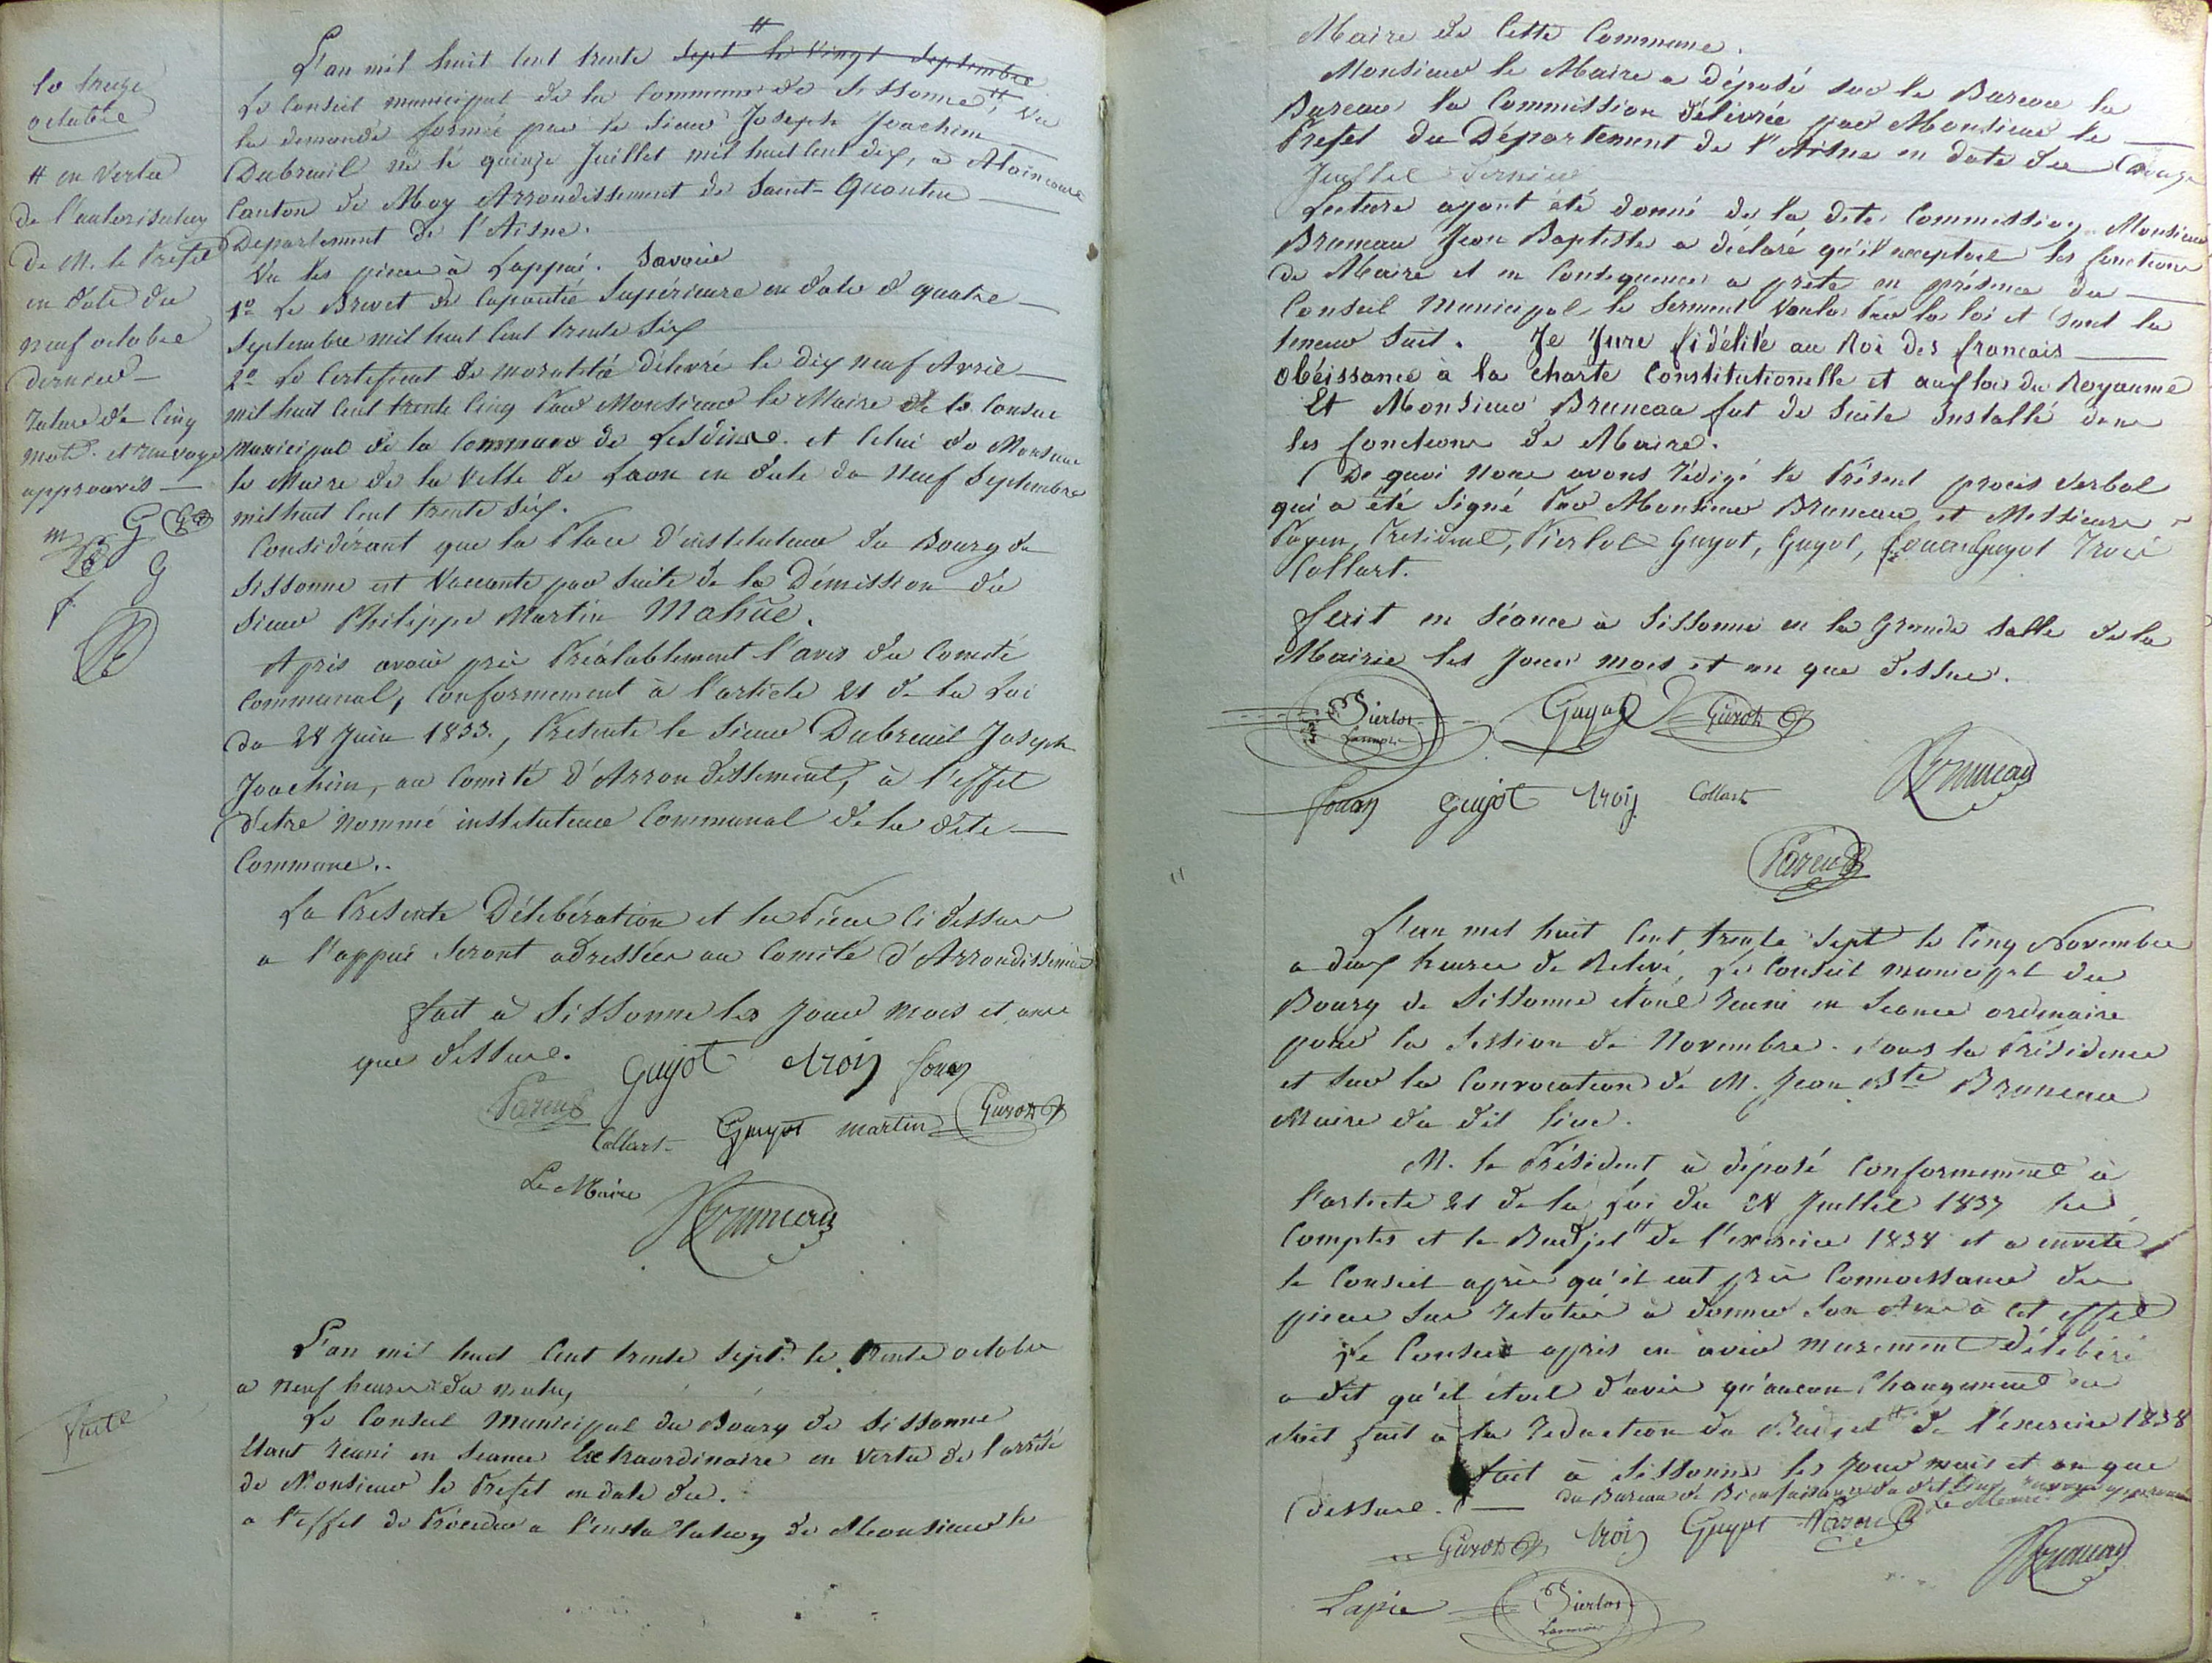 le treize
octobre
# en vertu
de l'autorisation
de M. le Préfet
en date du
neuf octobre
dernier
Rature de Cinq
mots et renvoye
approuvés
L'an mil huit cent trente sept le vingt septembre #
Le Conseil municipal de la Commune de Sissonne, # Vu
la demande formée par le Sieur Joseph Joachim
Dubreuil né le quinze Juillet mil huit cent dix, à Alaincourt
Canton de Moy Arrondissement de Saint-Quentin
Departement de l'Aisne.
Vu les pieces à L'appui. Savoir
1º Le Brevet de Capacité Supérieure en date d quatre
Septembre mil huit Cent trente Six
2º Le Certificat de moralité délivré le dix neuf Avril
mil huit Cent trente Cinq Par Monsieur le Maire de le Conseil
municipal de la Commune de Lesdins. et Celui de Monsieur
le Maire de la Ville de Laon en date du Neuf Septembre
mil huit Cent trente Six.
Considerant que la Place d'instituteur du Bourg de
Sissonne est Vaccante par Suite de la Démission du
Sieur Philippe Martin Mahüe.
Après avoir pris Préalablement l'avis du Comité
Communal, Conformement à l'article 21 de la Loi
du 28 Juin 1833., Présente le Sieur Dubreuil Joseph
Joachim, au Comité d'Arrondissement, à l'effet
d'etre Nommé instituteur Communal de la dite
Commune..
La Présente Délibération et les Pièces Ci dessus
a l'appui Seront adressées au Comité d'Arrondissement
fait à Sissonne les Jour mois et an
que dessus.
Guyot troij fouan
Parent
Collart Guyot martin Guyot
Le Maire
Bruneau
fruité
L'an mil huit Cent trente Sept. le trente octobre
a Neuf heures du matin
Le Conseil Municipal du Bourg de Sissonne
Etant réuni en Seance Extraordinaire en vertu de l'arrêté
de Monsieur le Préfet en date du.
a l'effet de Procéder a l'installation de Monsieur le
Maire de Cette Commune.
Monsieur le Maire a déposé sur le Bureau la
Bureau la Commission délivrée par Monsieur le
Prefet du Département de l'Aisne en date du Douze
Juillet dernier
Lecture ayant été donné de la dite Commission Monsieur
Bruneau Jean Baptiste a déclaré qu'il acceptait les fonctions
de Maire et en Conséquence a prêté en présence du
Conseil Municipal le Serment Voulu Par la loi et dont la
teneur Suit. Je Jure fidélité au Roi des français
obéissance à la charte Constitutionelle et aux lois du Royaume
Et Monsieur Bruneau fut de Suite Installé dans
les fonctions de Maire.
De quoi Nous avons rédigé le Présent procès verbal
qui a été Signé Par Monsieur Bruneau et Messieurs
President, Pierlot Guyot, Guyot, fouan Guyot Troij
Collart.
fait en Séance à Sissonne en la Grande Salle de la
Mairie les Jour mois et an que dessus.
Pierlot Guyot Guyot
Bruneau
fouan Guyot troij Collart
Parent
L'an mil huit Cent trente Sept le Cinq Novembre
a deux heures de Relevé, Le Conseil municipal du
Bourg de Sissonne étant réuni en Seance ordinaire
pour la Session de Novembre. Sous la Présidence
et sur la Convocation de M. Jean Bte Bruneau
Maire du dit lieu.
M. le Président, à déposé Conformement à
l'article 21 de la Loi du 18 Juillet 1837 les
Comptes et le Budjet # de l'exercice 1838 et a invité
le Conseil après qu'il eut pris Connaissance des
pieces Sus relatées à donner Son Avis à cet effet
Le Conseil après en avoir murement délibéré
a dit qu'il était d'avis qu'aucun Changement ne
Soit fait à la rédaction du Budjet # de l'exercice 1838
fait à Sissonne les Jour mois et an que
dessus. # du Bureau de Bienfaisance du dit lieu renvoye approuvé
Le Maire
Guyot troij Guyot Parent Bruneau
Lapie Pierlot